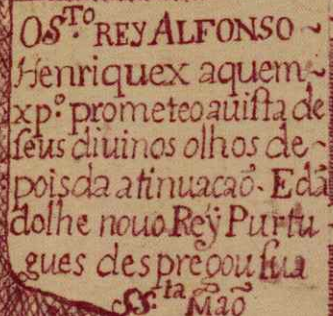 O S.ᵗᵒ REY ALFONSO ~
Henriquex aquem ~
xp.º prometeo auista de
seus diuinos olhos de-
pois da atinuacaõ. E dã
dolhe nouo Reÿ Purtu
gues despregou sua
SS.ᵗᵃ Maõ